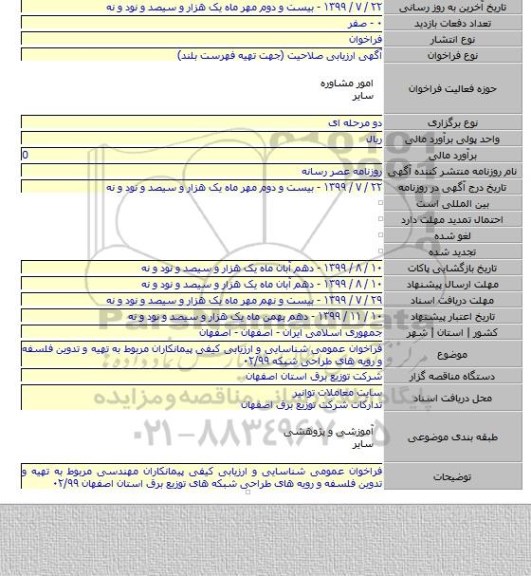 تاریخ آخرین به روز رسانی ۲۲ / ۷ / ۱۳۹۹ - بیست و دوم مهر ماه یک هزار و سیصد و نود و نه
تعداد دفعات بازدید ۰ - صفر
نوع انتشار فراخوان
نوع فراخوان آگهی ارزیابی صلاحیت (جهت تهیه فهرست بلند)
حوزه فعالیت فراخوان امور مشاوره
سایر
نوع برگزاری دو مرحله ای
واحد پولی برآورد مالی ریال
برآورد مالی 0
نام روزنامه منتشر کننده آگهی روزنامه عصر رسانه
تاریخ درج آگهی در روزنامه ۲۲ / ۷ / ۱۳۹۹ - بیست و دوم مهر ماه یک هزار و سیصد و نود و نه
بین المللی است
احتمال تمدید مهلت دارد
لغو شده
تجدید شده
تاریخ بازگشایی پاکات ۱۰ / ۸ / ۱۳۹۹ - دهم آبان ماه یک هزار و سیصد و نود و نه
مهلت ارسال پیشنهاد ۱۰ / ۸ / ۱۳۹۹ - دهم آبان ماه یک هزار و سیصد و نود و نه
مهلت دریافت اسناد ۲۹ / ۷ / ۱۳۹۹ - بیست و نهم مهر ماه یک هزار و سیصد و نود و نه
تاریخ اعتبار پیشنهاد ۱۰ / ۱۱ / ۱۳۹۹ - دهم بهمن ماه یک هزار و سیصد و نود و نه
کشور | استان | شهر جمهوری اسلامی ایران - اصفهان - اصفهان
موضوع فراخوان عمومی شناسایی و ارزیابی کیفی پیمانکاران مربوط به تهیه و تدوین فلسفه
و رویه های طراحی شبکه ۰۲/۹۹
دستگاه مناقصه گزار شرکت توزیع برق استان اصفهان
محل دریافت اسناد سایت معاملات توانیر
تدارکات شرکت توزیع برق اصفهان
طبقه بندی موضوعی آموزشی و پژوهشی
سایر
توضیحات فراخوان عمومی شناسایی و ارزیابی کیفی پیمانکاران مهندسی مربوط به تهیه و
تدوین فلسفه و رویه های طراحی شبکه های توزیع برق استان اصفهان ۰۲/۹۹
۰۲۱-۸۸۳۴۹۶۷۰-۵